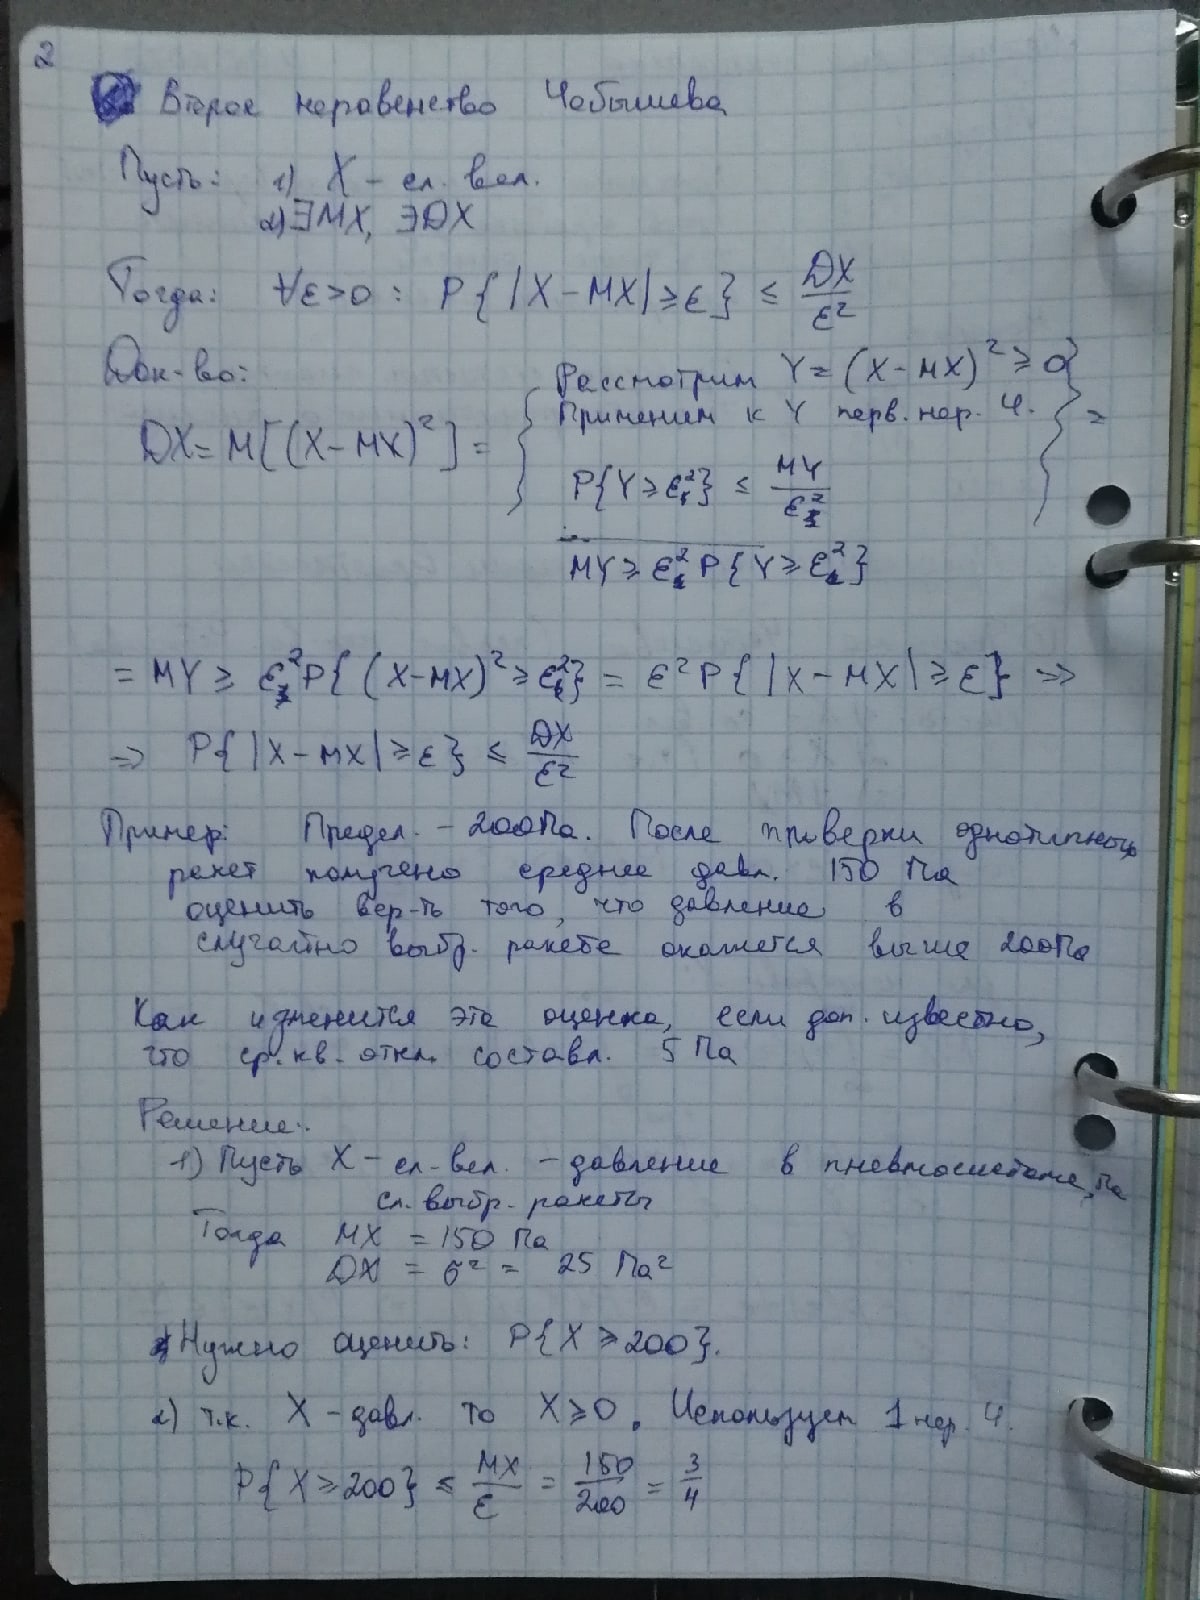 2
Второе неравенство Чебышева
Пусть: 1) X – сл. вел.
2) ∃MX, ∃DX
Тогда: ∀ε>0 : P{|X – MX| ≥ ε} ≤ DX/ε²
Док-во:
Рассмотрим Y = (X – MX)² ≥ 0
Применим к Y перв. нер. Ч.
DX = M[(X – MX)²] = { } =
P{Y ≥ ε²} ≤ MY/ε²
MY ≥ ε² P{Y ≥ ε²}
= MY ≥ ε² P{(X – MX)² ≥ ε²} = ε² P{|X – MX| ≥ ε} ⇒
⇒ P{|X – MX| ≥ ε} ≤ DX/ε²
Пример: Предел. – 200 Па. После проверки однотипных
ракет получено среднее давл. 150 Па
оценить вер-ть того, что давление в
случайно выбр. ракете окажется выше 200 Па
Как изменится эта оценка, если доп. известно,
что ср. кв. откл. составл. 5 Па
Решение:
1) Пусть X – сл. вел. – давление в пневмосистеме, Па
сл. выбр. ракеты
Тогда MX = 150 Па
DX = σ² = 25 Па²
Нужно оценить: P{X ≥ 200}.
2) т.к. X – давл. то X ≥ 0. Используем 1 нер. Ч.
P{X ≥ 200} ≤ MX/ε = 150/200 = 3/4